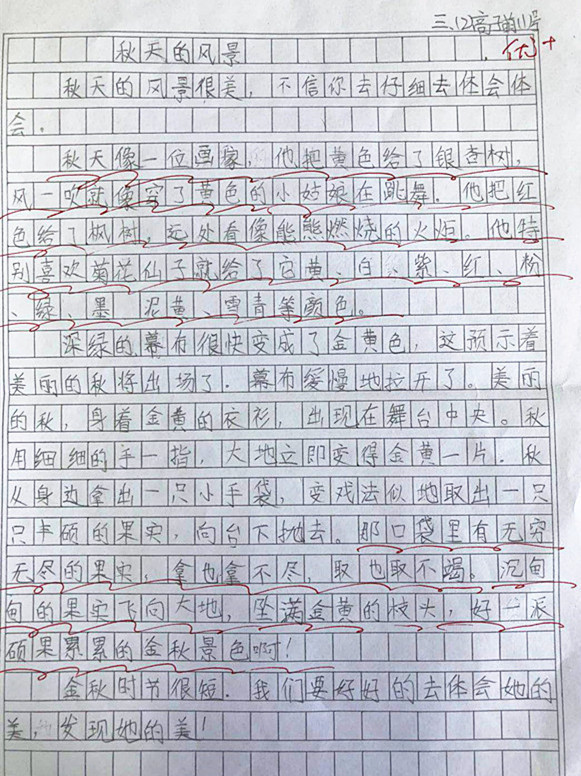 三.12高子前11号
秋天的风景
优+
秋天的风景很美，不信你去仔细去体会体
会.
秋天像一位画家，他把黄色给了银杏树，
风一吹就像穿了黄色的小姑娘在跳舞.他把红
色给了枫树，远处看像熊熊燃烧的火炬。他特
别喜欢菊花仙子就给了它黄、白、紫、红、粉
、绿、墨 泥黄、雪青等颜色。
深绿的幕布很快变成了金黄色，这预示着
美丽的秋将出场了.幕布缓慢地拉开了。美丽
的秋，身着金黄的衣衫，出现在舞台中央。秋
用细细的手一指，大地立即变得金黄一片.秋
从身边拿出一只小手袋，变戏法似地取出一只
只丰硕的果实，向台下抛去。那口袋里有无穷
无尽的果实，拿也拿不尽，取也取不竭。沉甸
甸的果实飞向大地，坠满金黄的枝头，好一派
硕果累累的金秋景色啊！
金秋时节很短.我们要好好的去体会她的
美，发现她的美！